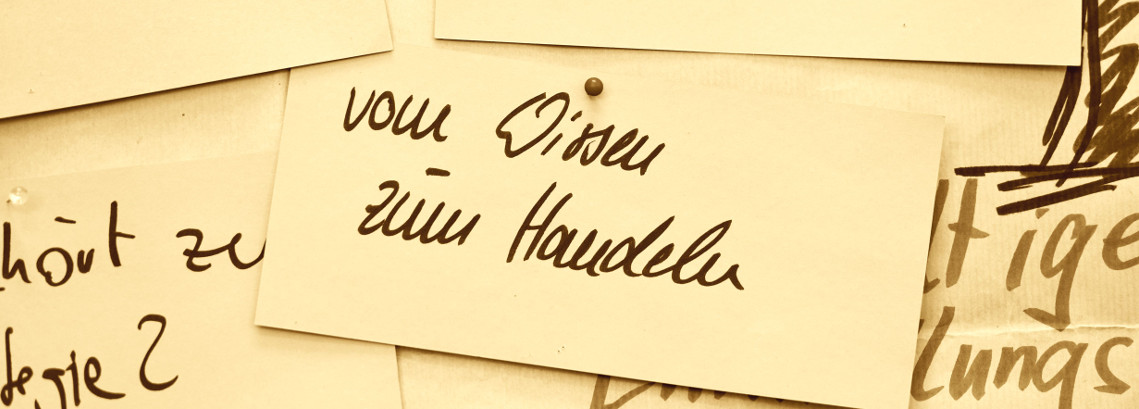 vom Wissen
zum Handeln
hört zu
tegie?
tige
lungs